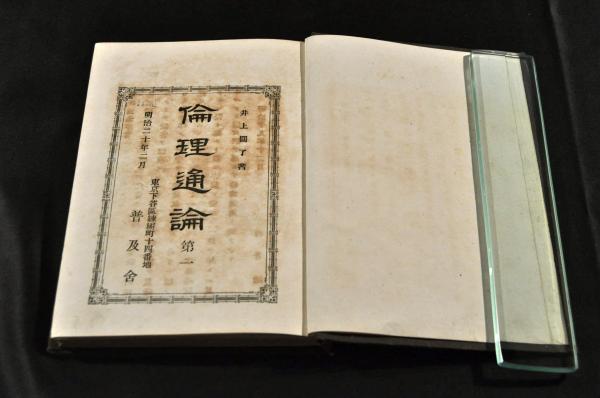 井上圓了著
倫理通論 第一
明治二十年二月
東京下谷區練塀町十四番地
普及舍